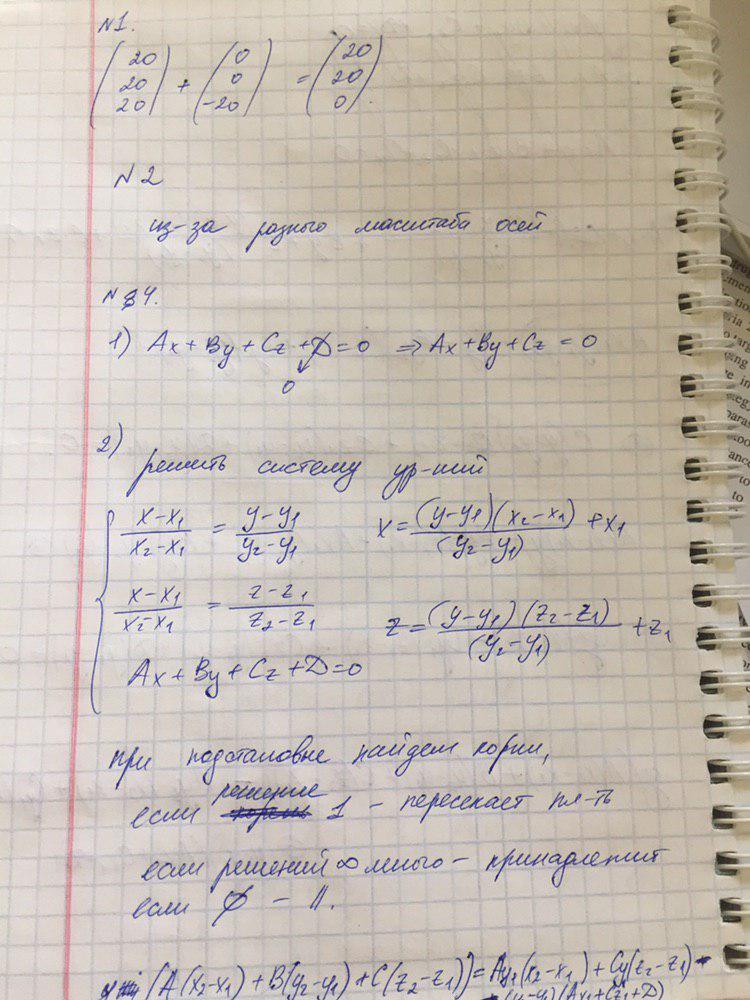 №1.
(20 20 20) + (0 0 -20) = (20 20 0).
№2
из-за разного масштаба осей
№4.
1) Ax + By + Cz + D = 0 ⇒ Ax + By + Cz = 0
0
2) решить систему ур-ний
{ (x-x₁)/(x₂-x₁) = (y-y₁)/(y₂-y₁) x = (y-y₁)(x₂-x₁)/(y₂-y₁) + x₁
(x-x₁)/(x₂-x₁) = (z-z₁)/(z₂-z₁) z = (y-y₁)(z₂-z₁)/(y₂-y₁) + z₁
Ax + By + Cz + D = 0
при подстановке найдем корни,
если решение 1 - пересекает пл-ть
если решений ∞ много - принадлежит
если ∅ - ||.
(A(x₂-x₁) + B(y₂-y₁) + C(z₂-z₁)) = Ay₁(x₂-x₁) + Cy₁(z₂-z₁) -